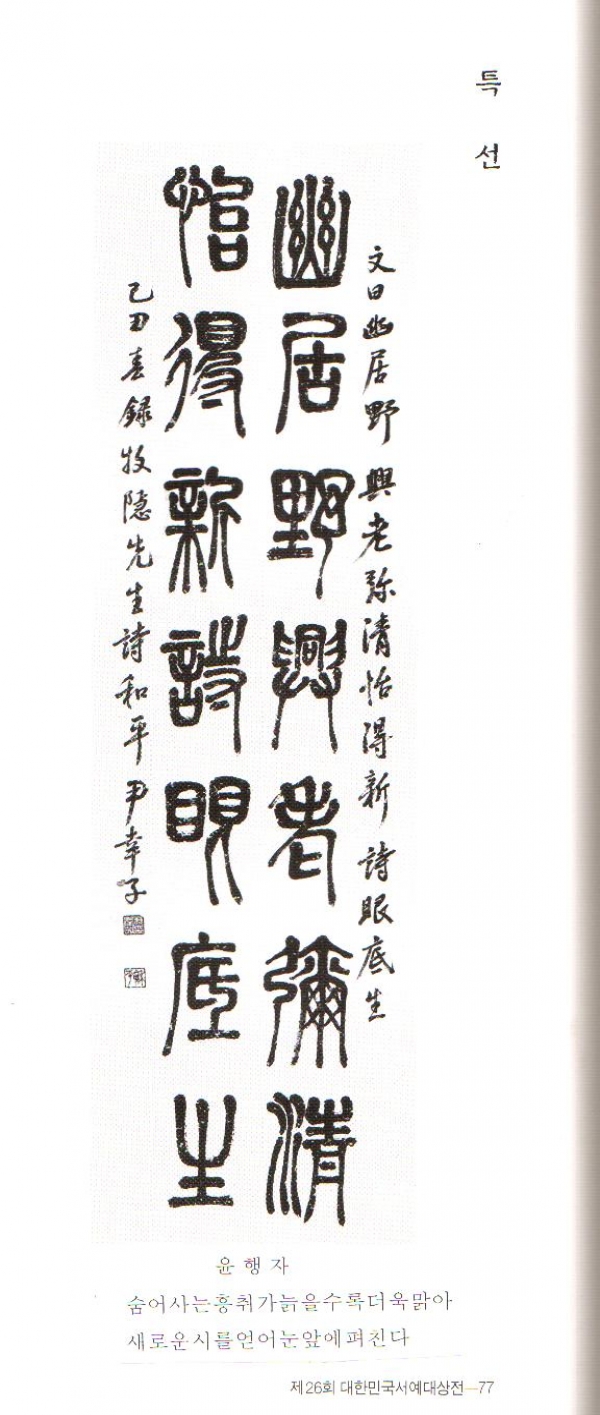 특선
文曰幽居野興老弥清怡得新詩眼底生
幽居野興老彌清
怡得新詩眼底生
己丑春録牧隱先生詩和平尹幸子
윤행자
숨어사는흥취가늙을수록더욱맑아
새로운시를얻어눈앞에펴친다
제26회 대한민국서예대상전—77